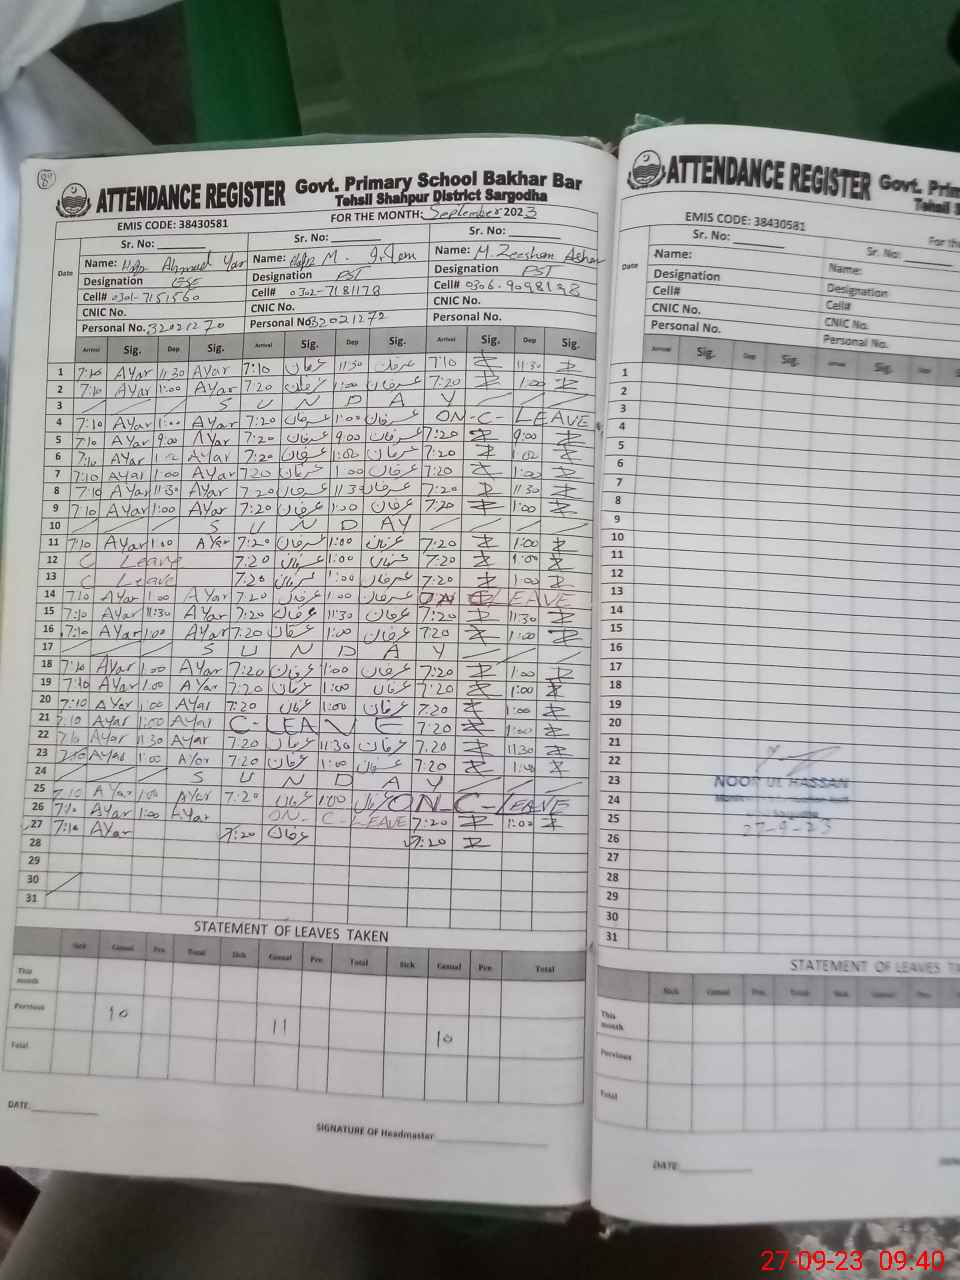 84
ATTENDANCE REGISTER Govt. Primary School Bakhar Bar
Tehsil Shahpur District Sargodha
EMIS CODE: 38430581 FOR THE MONTH: September 2023
Sr. No: Sr. No: Sr. No:
Date
Name: Ahmad Yar Name: M. Name: M. Zeeshan
Designation ESE Designation PST Designation PST
Cell# 0301-7151560 Cell# 0302-7181178 Cell# 0306.9098198
CNIC No. CNIC No. CNIC No.
Personal No. 32021270 Personal No. 32021272 Personal No.
Arrival Sig. Dep Sig. Arrival Sig. Dep Sig. Arrival Sig. Dep Sig.
1 7:10 AYar 11:30 AYar 7:10 عرفان 11:30 عرفان 7:10 11:30
2 7:10 AYar 1:00 AYar 7:20 عرفان 1:00 عرفان 7:20 1:00
3 S U N D A Y
4 7:10 AYar 1:00 AYar 7:20 عرفان 1:00 عرفان ON-C-LEAVE
5 7:10 AYar 9:00 AYar 7:20 عرفان 9:00 عرفان 7:20 9:00
6 7:10 AYar 1:00 AYar 7:20 عرفان 1:00 عرفان 7:20 1:00
7 7:10 AYar 1:00 AYar 7:20 عرفان 1:00 عرفان 7:20 1:00
8 7:10 AYar 11:30 AYar 7:20 عرفان 11:30 عرفان 7:20 11:30
9 7:10 AYar 1:00 AYar 7:20 عرفان 1:00 عرفان 7:20 1:00
10 S U N D AY
11 7:10 AYar 1:00 AYar 7:20 عرفان 1:00 عرفان 7:20 1:00
12 C Leave 7:20 عرفان 1:00 عرفان 7:20 1:00
13 C Leave 7:20 عرفان 1:00 عرفان 7:20 1:00
14 7:10 AYar 1:00 AYar 7:20 عرفان 1:00 عرفان ON C LEAVE
15 7:10 AYar 11:30 AYar 7:20 عرفان 11:30 عرفان 7:20 11:30
16 7:10 AYar 1:00 AYar 7:20 عرفان 1:00 عرفان 7:20 1:00
17 S U N D A Y
18 7:10 AYar 1:00 AYar 7:20 عرفان 1:00 عرفان 7:20 1:00
19 7:10 AYar 1:00 AYar 7:20 عرفان 1:00 عرفان 7:20 1:00
20 7:10 AYar 1:00 AYar 7:20 عرفان 1:00 عرفان 7.20 1:00
21 7:10 AYar 1:00 AYar C-LEAVE 7:20 1:00
22 7:10 AYar 11:30 AYar 7:20 عرفان 11:30 عرفان 7.20 11:30
23 7:10 AYar 1:00 AYar 7:20 عرفان 1:00 عرفان 7:20 1:00
24 S U N D A Y
25 7:10 AYar 1:00 AYar 7:20 عرفان 1:00 عرفان ON-C-LEAVE
26 7:10 AYar 1:00 AYar ON-C-LEAVE 7:20 1:00
27 7:10 AYar 7:20 عرفان 7:20
28
29
30
31
STATEMENT OF LEAVES TAKEN
Sick Casual Pre. Total Sick Casual Pre Total Sick Casual Pre Total
This month
Previous 10 11 10
Total
DATE:
SIGNATURE OF Headmaster
ATTENDANCE REGISTER Govt. Prim
Tehsil S
EMIS CODE: 38430581 For the
Sr. No: Sr. No:
Date
Name: Name:
Designation Designation
Cell# Cell#
CNIC No. CNIC No.
Personal No. Personal No.
Arrival Sig. Dep Sig. Arrival Sig. Dep S
1
2
3
4
5
6
7
8
9
10
11
12
13
14
15
16
17
18
19
20
21
22
23
24
25
26
27
28
29
30
31
NOOR UL HASSAN
27-9-23
STATEMENT OF LEAVES TA
Sick Casual Pre. Total Sick Casual Pre Total
This month
Previous
Total
DATE:
27-09-23 09.40